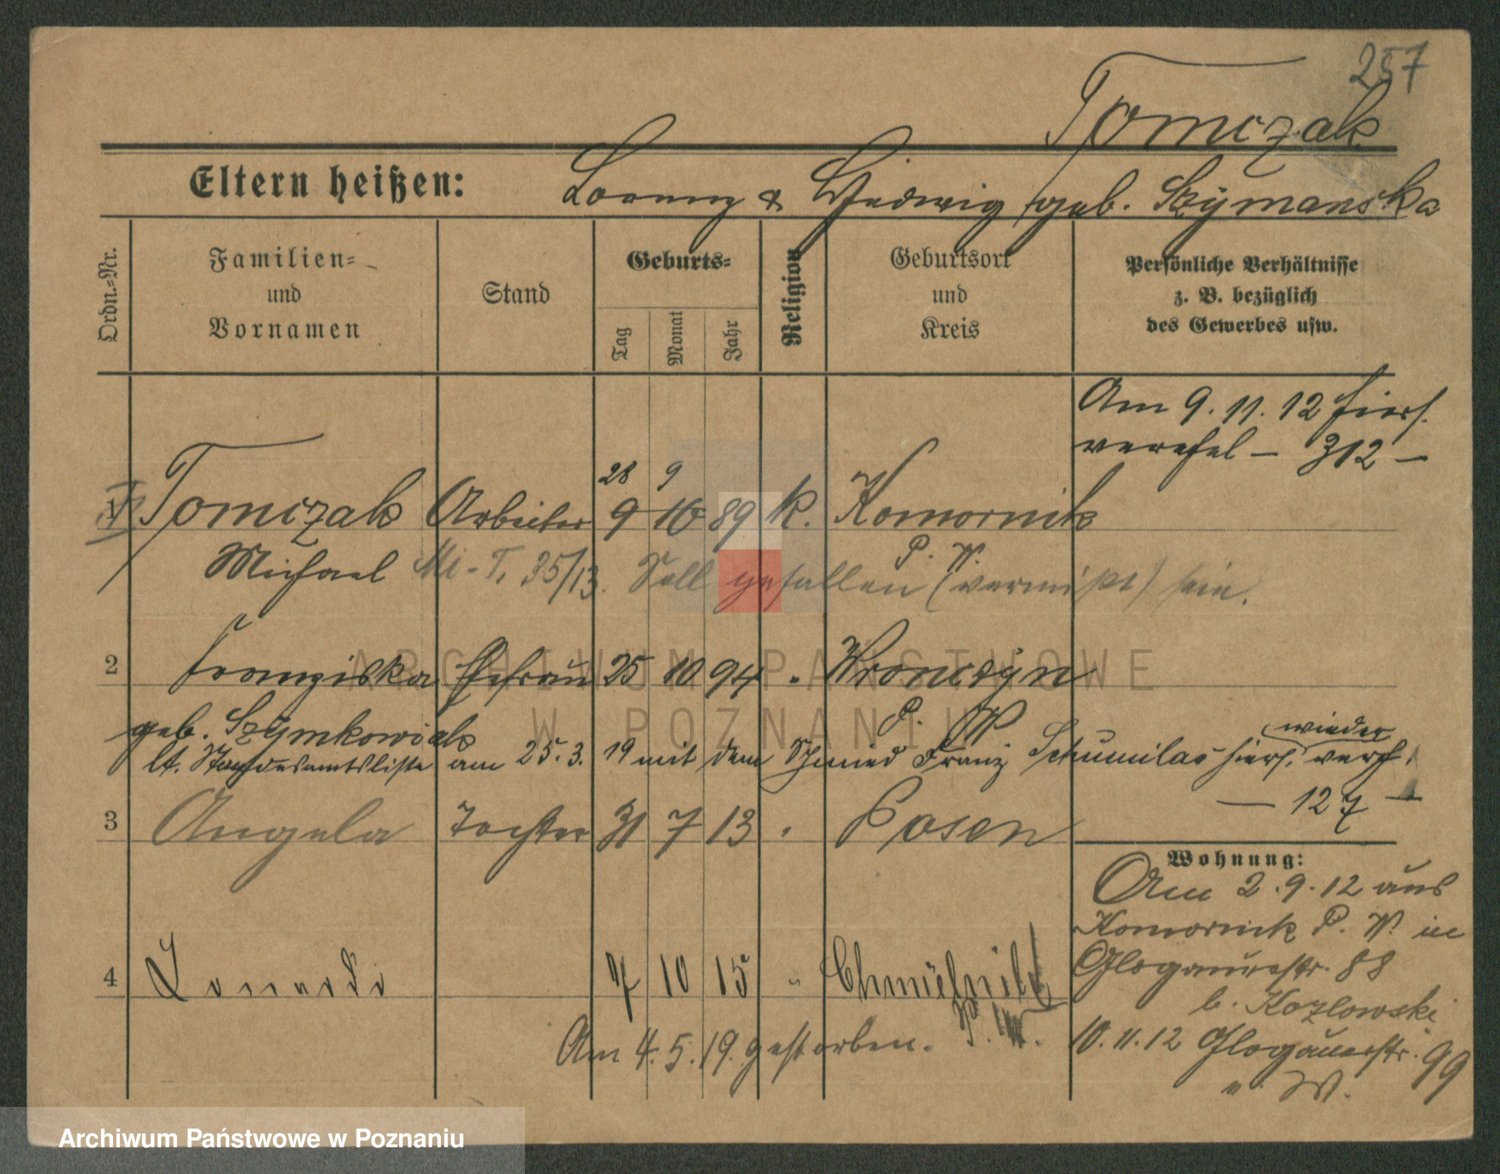 257
Tomczak
Eltern heißen: Lorenz & Hedwig geb. Szymanska
Ordn.-Nr.
Familien-
und
Vornamen
Stand
Geburts-
Tag
Monat
Jahr
Religion
Geburtsort
und
Kreis
Persönliche Verhältnisse
z. B. bezüglich
des Gewerbes usw.
Am 9. 11. 12 hiers.
verehel – 312 –
28 9
1 Tomczak Arbeiter 9 10 89 k. Komornik
P. W.
Michael Mi-T. 35/13. Soll gefallen (vermißt) sein.
2 Franziska Ehefrau 25 10 94 " Wronczyn
geb. Szymkowiak P. W.
wieder
lt. Standesamtsliste am 25. 3. 19 mit dem Schmied Franz Schumilas hiers. verh.
— 127 —
3 Angela Tochter 31 7 13 " Posen
Wohnung:
Am 2. 9. 12 aus
Komornik P. W. in
Glogauerstr. 88
b. Kozlowski
10. 11. 12 Glogauerstr. 99
v. W.
4 7 10 15 "
P. W.
Am 4. 5. 19. gestorben.
ARCHIWUM PAŃSTWOWE
W POZNANIU
Archiwum Państwowe w Poznaniu